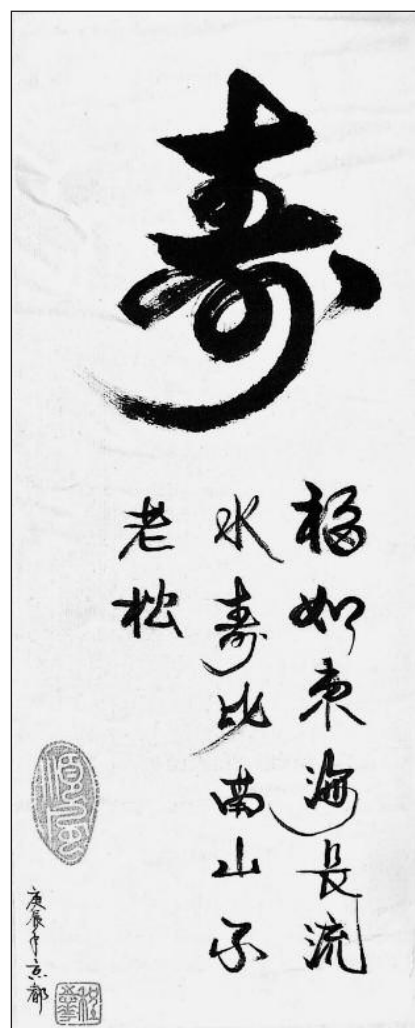 寿
福如东海长流
水寿比南山不
老松
庚辰年京都